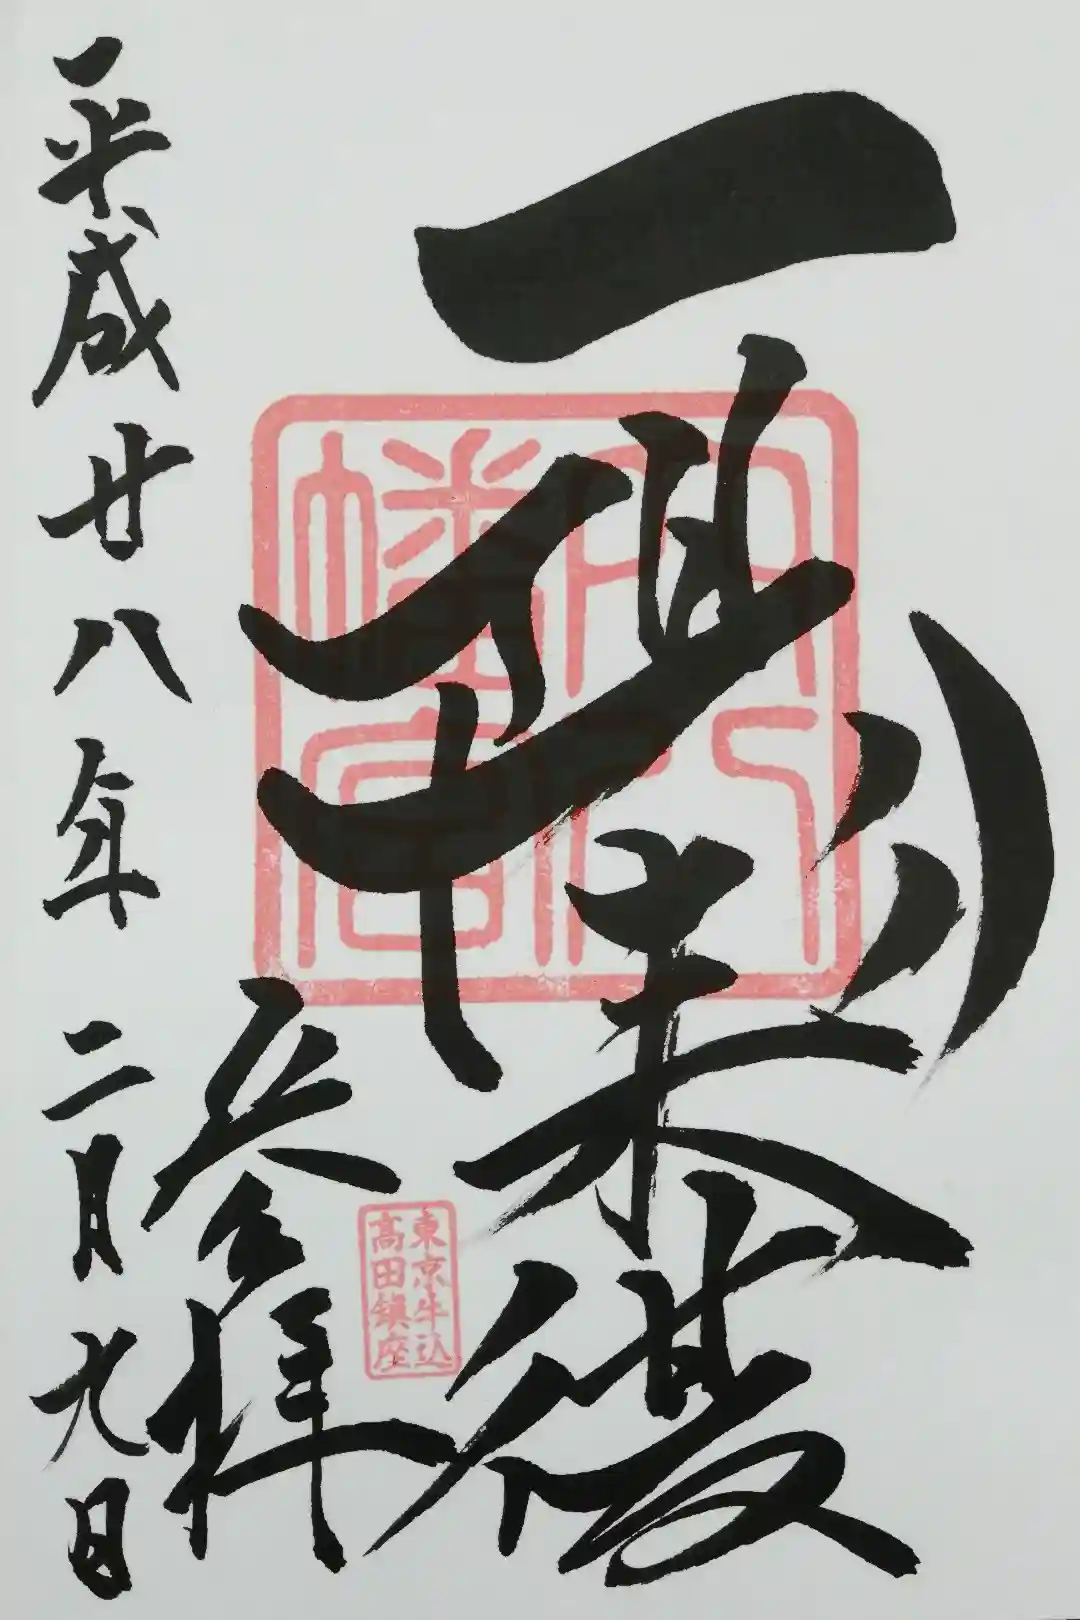 一陽来復
穴八
幡宮
東京牛込
高田鎮座
参拝
平成廿八年二月九日